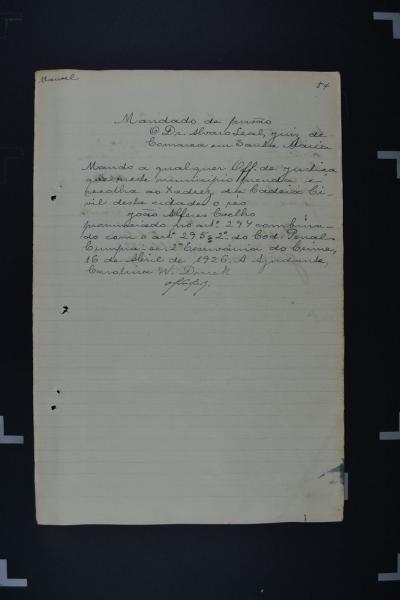 Manoel
54
Mandado de prisão
O Dr. Alvaro Leal, juiz de
Comarca em Santa Maria
Mando a qualquer Off. de justiça
que neste municipio prenda e
recolha ao Xadrez da Cadeia Ci-
vil desta cidade o reo
João Alferes Coelho
pronunciado no artº 294 combina-
do com o artº 295 § 2º do Cod. Penal.
Cumpra-se. 2º Escrivania do Crime,
16 de Abril de 1926. A Ajudante,
Carolina W. Druck